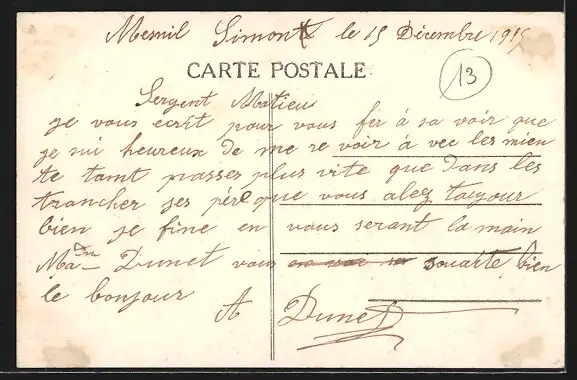 Mesnil Simont le 15 Décembre 1915
CARTE POSTALE
13
Sergent Matieu
je vous ecrit pour vous fer à sa voir que
je sui heureux de me re voir à vec les mien
te tamt passer plus vite que dans les
trancher jes père que vous alez toujour
bien je fine en vous serant la main
Ma Dme Dunet vous souaite bien
le bonjour
A Dunet